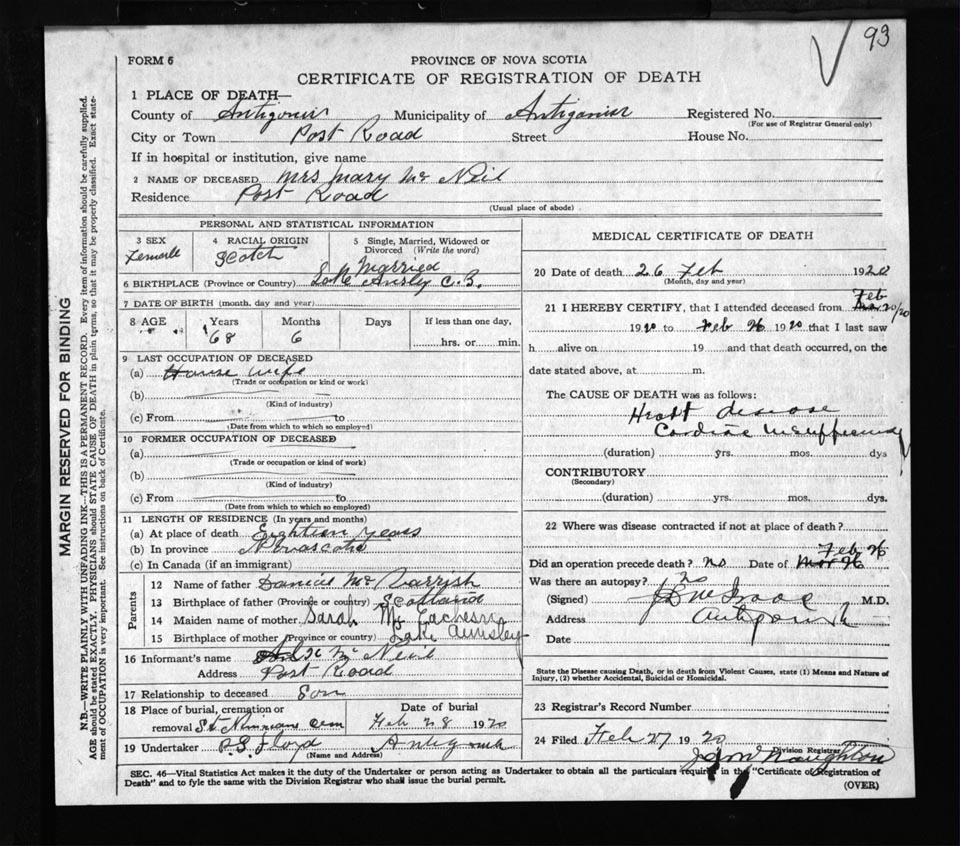 93
FORM 6
PROVINCE OF NOVA SCOTIA
CERTIFICATE OF REGISTRATION OF DEATH
1 PLACE OF DEATH—
County of Antigonish Municipality of Antigonish Registered No.
(For use of Registrar General only)
City or Town Post Road Street House No.
If in hospital or institution, give name
2 NAME OF DECEASED Mrs Mary Mc Neil
Residence Post Road
(Usual place of abode)
PERSONAL AND STATISTICAL INFORMATION
3 SEX 4 RACIAL ORIGIN 5 Single, Married, Widowed or
Divorced (Write the word)
Female Scotch Married
6 BIRTHPLACE (Province or Country) Lake Ainsly C.B.
7 DATE OF BIRTH (month, day and year)
8 AGE Years Months Days If less than one day,
68 6 hrs. or min.
9 LAST OCCUPATION OF DECEASED
(a) House wife
(Trade or occupation or kind or work)
(b)
(Kind of industry)
(c) From to
(Date from which to which so employed)
10 FORMER OCCUPATION OF DECEASED
(a)
(Trade or occupation or kind of work)
(b)
(Kind of industry)
(c) From to
(Date from which to which so employed)
11 LENGTH OF RESIDENCE (In years and months)
(a) At place of death Eighteen years
(b) In province Novascotia
(c) In Canada (if an immigrant)
Parents
12 Name of father Daniel Mc Varrish
13 Birthplace of father (Province or country) Scotland
14 Maiden name of mother Sarah Mc
15 Birthplace of mother (Province or country) Lake Ainsley
16 Informant's name Mc Neil
Address Post Road
17 Relationship to deceased Son
18 Place of burial, cremation or Date of burial
removal St Ninians Cem Feb 28 1920
19 Undertaker P.S. Floyd Antigonish
(Name and Address)
MEDICAL CERTIFICATE OF DEATH
20 Date of death 26 Feb 1920
(Month, day and year)
21 I HEREBY CERTIFY, that I attended deceased from Feb 20/20
1920 to Feb 26 1920 that I last saw
h alive on 19 and that death occurred, on the
date stated above, at m.
The CAUSE OF DEATH was as follows:
Heart disease
Cardiac insufficiency
(duration) yrs. mos. dys
CONTRIBUTORY
(Secondary)
(duration) yrs. mos. dys.
22 Where was disease contracted if not at place of death?
Feb 26
Did an operation precede death? no Date of Mar 26
Was there an autopsy? no
(Signed) M.D.
Address Antigonish
Date
State the Disease causing Death, or in death from Violent Causes, state (1) Means and Nature of
Injury, (2) whether Accidental, Suicidal or Homicidal.
23 Registrar's Record Number
24 Filed Feb 27 1920
Division Registrar
SEC. 46—Vital Statistics Act makes it the duty of the Undertaker or person acting as Undertaker to obtain all the particulars required in the "Certificate of Registration of
Death" and to fyle the same with the Division Registrar who shall issue the burial permit.
(OVER)
MARGIN RESERVED FOR BINDING
N.B.—WRITE PLAINLY WITH UNFADING INK—THIS IS A PERMANENT RECORD. Every item of information should be carefully supplied.
AGE should be stated EXACTLY. PHYSICIANS should STATE CAUSE OF DEATH in plain terms, so that it may be properly classified. Exact state-
ment of OCCUPATION is very important. See instructions on back of Certificate.